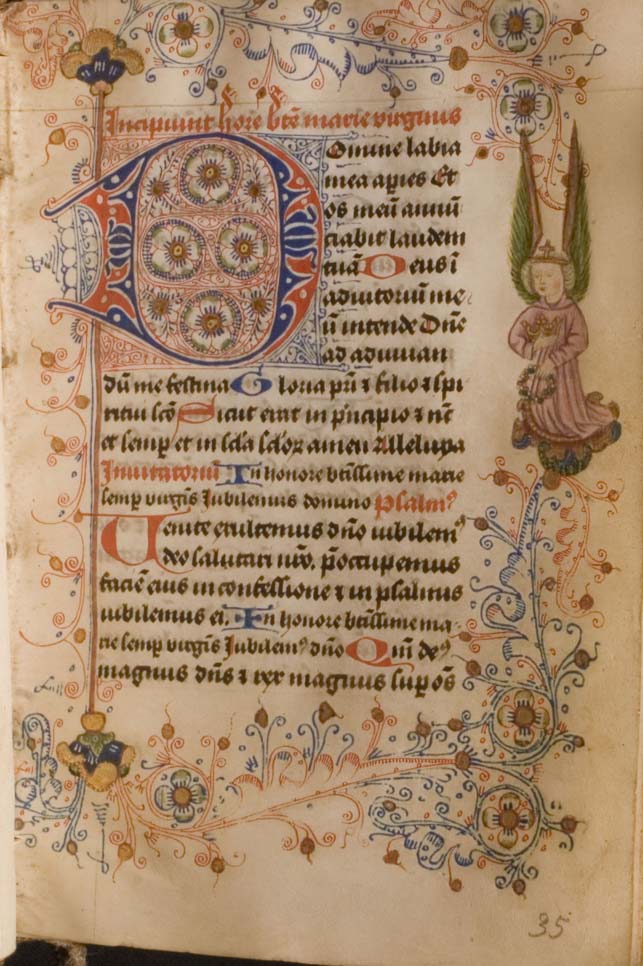 Incipiunt hore bt̄e marie virginis
Domine labia
mea aperies Et
os meū annū
ciabit laudem
tuā Deus ī
adiutoriū me
ū intende Dn̄e
ad adiuuan
dū me festina Gloria pr̄i ⁊ filio ⁊ spi
ritui sc̄o Sicut erat in pͥncipio ⁊ nc̄
et semp̱ et in sc̄la sc̄lor̄ amen Alleluya
Inuitatoriū In honore bt̄issime marie
semp̱ virgīs Iubilemus domino Psalmꝰ
Uenite exultemus dn̄o iubilemꝰ
deo salutari nr̄o. p̄occupemus
faciē eius in confessione ⁊ in psalmis
iubilemus ei. In honore bt̄issime ma
rie semp̱ virgīs Iubilemꝰ dn̄o Qm̄ deꝰ
magnus dn̄s ⁊ rex magnus sup̱ om̄s
35